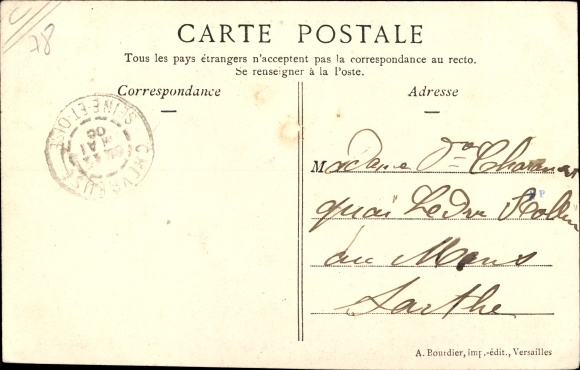 78
CARTE POSTALE
Tous les pays étrangers n'acceptent pas la correspondance au recto.
Se renseigner à la Poste.
Correspondance
Adresse
CHEVREUSE
SEINE-ET-OISE
MAI
08
Madame Vve
quai Ledru Rollin
au Mans
Sarthe
A. Bourdier, imp.-édit., Versailles